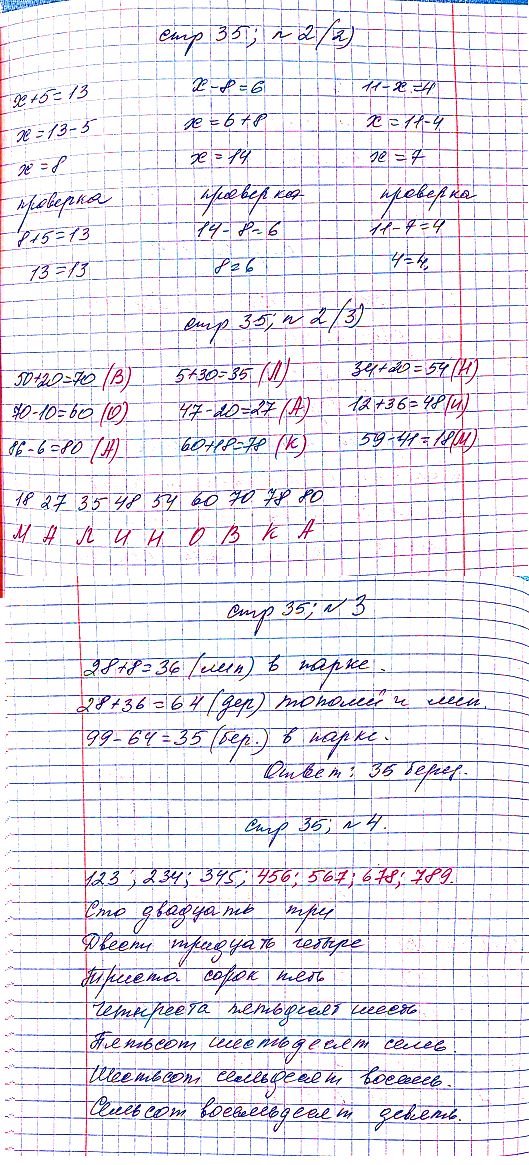 стр 35; № 2(2)
x+5=13 x-8=6 11-x=4
x=13-5 x=6+8 x=11-4
x=8 x=14 x=7
проверка проверка проверка
8+5=13 14-8=6 11-7=4
13=13 8=6 4=4
стр 35; № 2(3)
50+20=70 (В) 5+30=35 (Л) 34+20=54 (Н)
70-10=60 (О) 47-20=27 (А) 12+36=48 (И)
86-6=80 (А) 60+18=78 (К) 59-41=18 (М)
18 27 35 48 54 60 70 78 80
М А Л И Н О В К А
стр 35; № 3
28+8=36 (лип) в парке.
28+36=64 (дер) тополей и лип
99-64=35 (бер.) в парке.
Ответ: 35 берез.
стр 35; № 4.
123; 234; 345; 456; 567; 678; 789.
Сто двадцать три
Двести тридцать четыре
Триста сорок пять
Четыреста пятьдесят шесть
Пятьсот шестьдесят семь.
Шестьсот семьдесят восемь.
Семьсот восемьдесят девять.